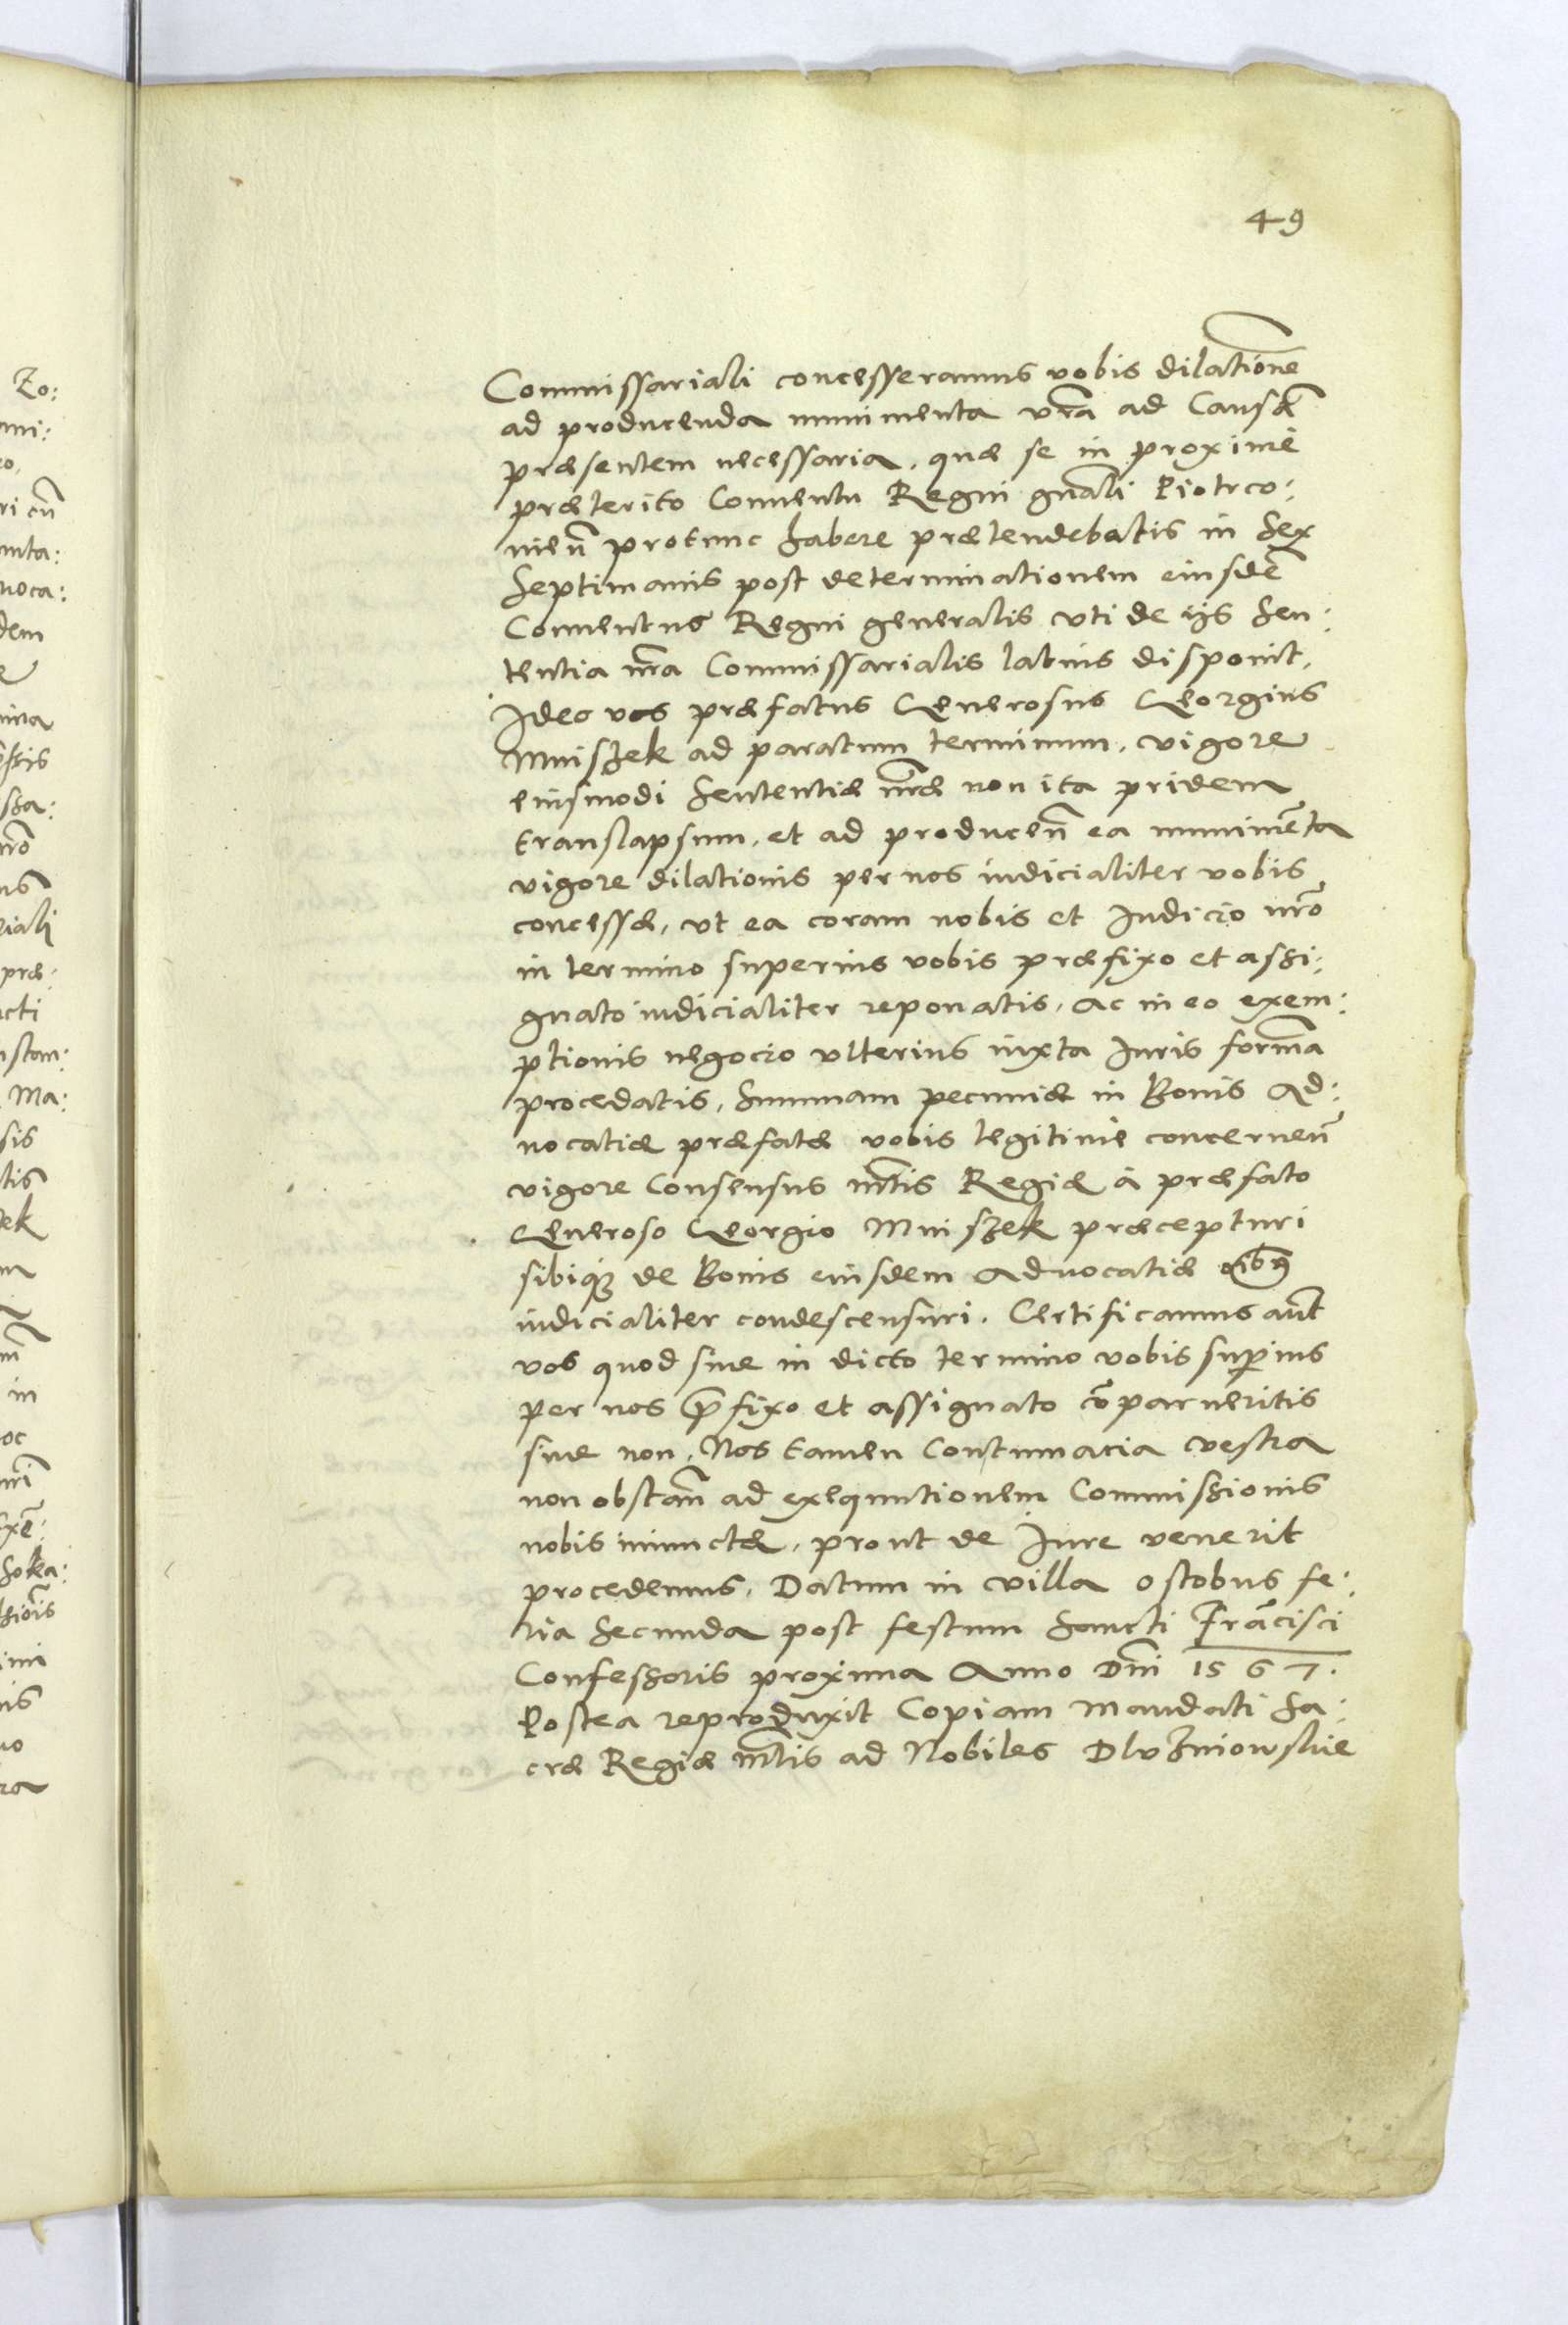 49
Commissariali concesseramus vobis dilatione͂
ad producenda munimenta vr͂a ad Causa͂
præsentem necessaria, quæ se in proximè
præterito Conuentu Regni gn͂ali Piotrco:
uien͂ protunc habere prætendebatis in sex
septimanis post determinationem eiusde͂
Conuentus Regni generalis vti de ijs sen:
tentia nr͂a Commissarialis latius disponit,
Ideo vos præfatus Generosus Georgius
Mniszek ad paratum terminum, vigore
eiusmodi sententiæ nr͂æ non ita pridem
translapsum, et ad producen͂ ea munime͂ta
vigore dilationis per nos iudicialiter vobis
concessæ, vt ea coram nobis et Iudicio nr͂o
in termino superius vobis præfixo et assi:
gnato iudicialiter reponatis, ac in eo exem:
ptionis negocio vlterius iuxta Iuris forma͂
procedatis, summam pecuniæ in Bonis Ad:
uocatiæ præfatæ vobis legitimè concernen͂
vigore Consensus Mt͂is Regiæ à præfato
Generoso Georgio Mniszek præcepturi
sibiq; de Bonis eiusdem Aduocatiæ oi͂bus
iudicialiter condescensuri. Certificamus aut͂
vos quod siue in dicto termino vobis sup͂ius
per nos p͂fixo et assignato co͂parueritis
siue non, Nos tamen Contumacia vestra
non obstan͂ ad exequutionem Commissionis
nobis iniunctæ, prout de Iure venerit
procedemus. Datum in villa Ostobus fe:
ria secunda post festum Sancti Fra͂cisci
Confessoris proxima Anno Dn͂i 1567.
Postea reproduxit Copiam Mandati Sa:
cræ Regiæ Mt͂is ad Nobiles Dluzniowskie
Zo: